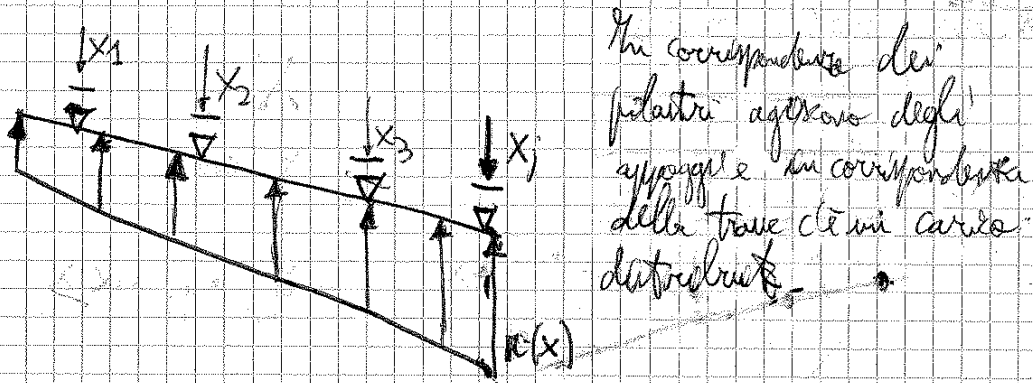 X1
X2
X3
Xj
r(x)
In corrispondenza dei
pilastri agiscono degli
appoggi e in corrispondenza
della trave c'è un carico
distribuito